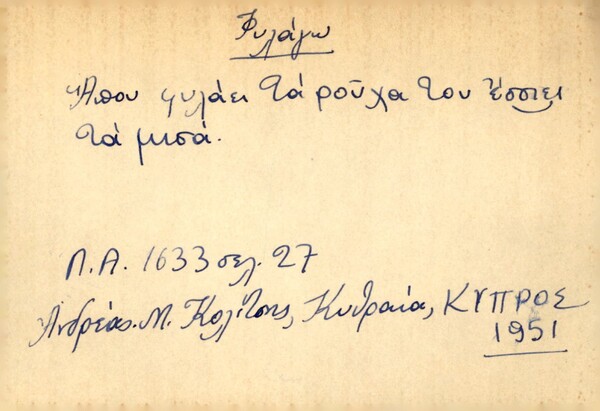 Φυλάγω
Ἁπου φυλάει τά ροῦχα του ἔσσιει
τά μισά.
Π.Α. 1633 σελ. 27
Ἀνδρέας.Μ. Κολίτσης, Κυθραία, ΚΥΠΡΟΣ
1951